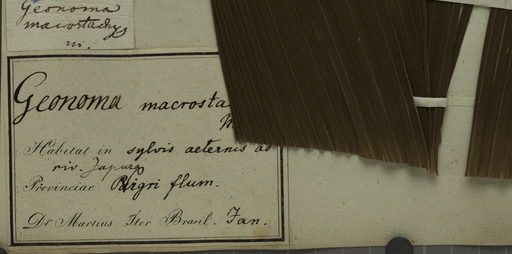 Geonoma
macrostachys
m.
Geonoma macrosta
Habitat in sylvis aeternis ad
riv. Japura
Provinciae Nigri flum.
Dr Martius Iter Brasil. Jan.